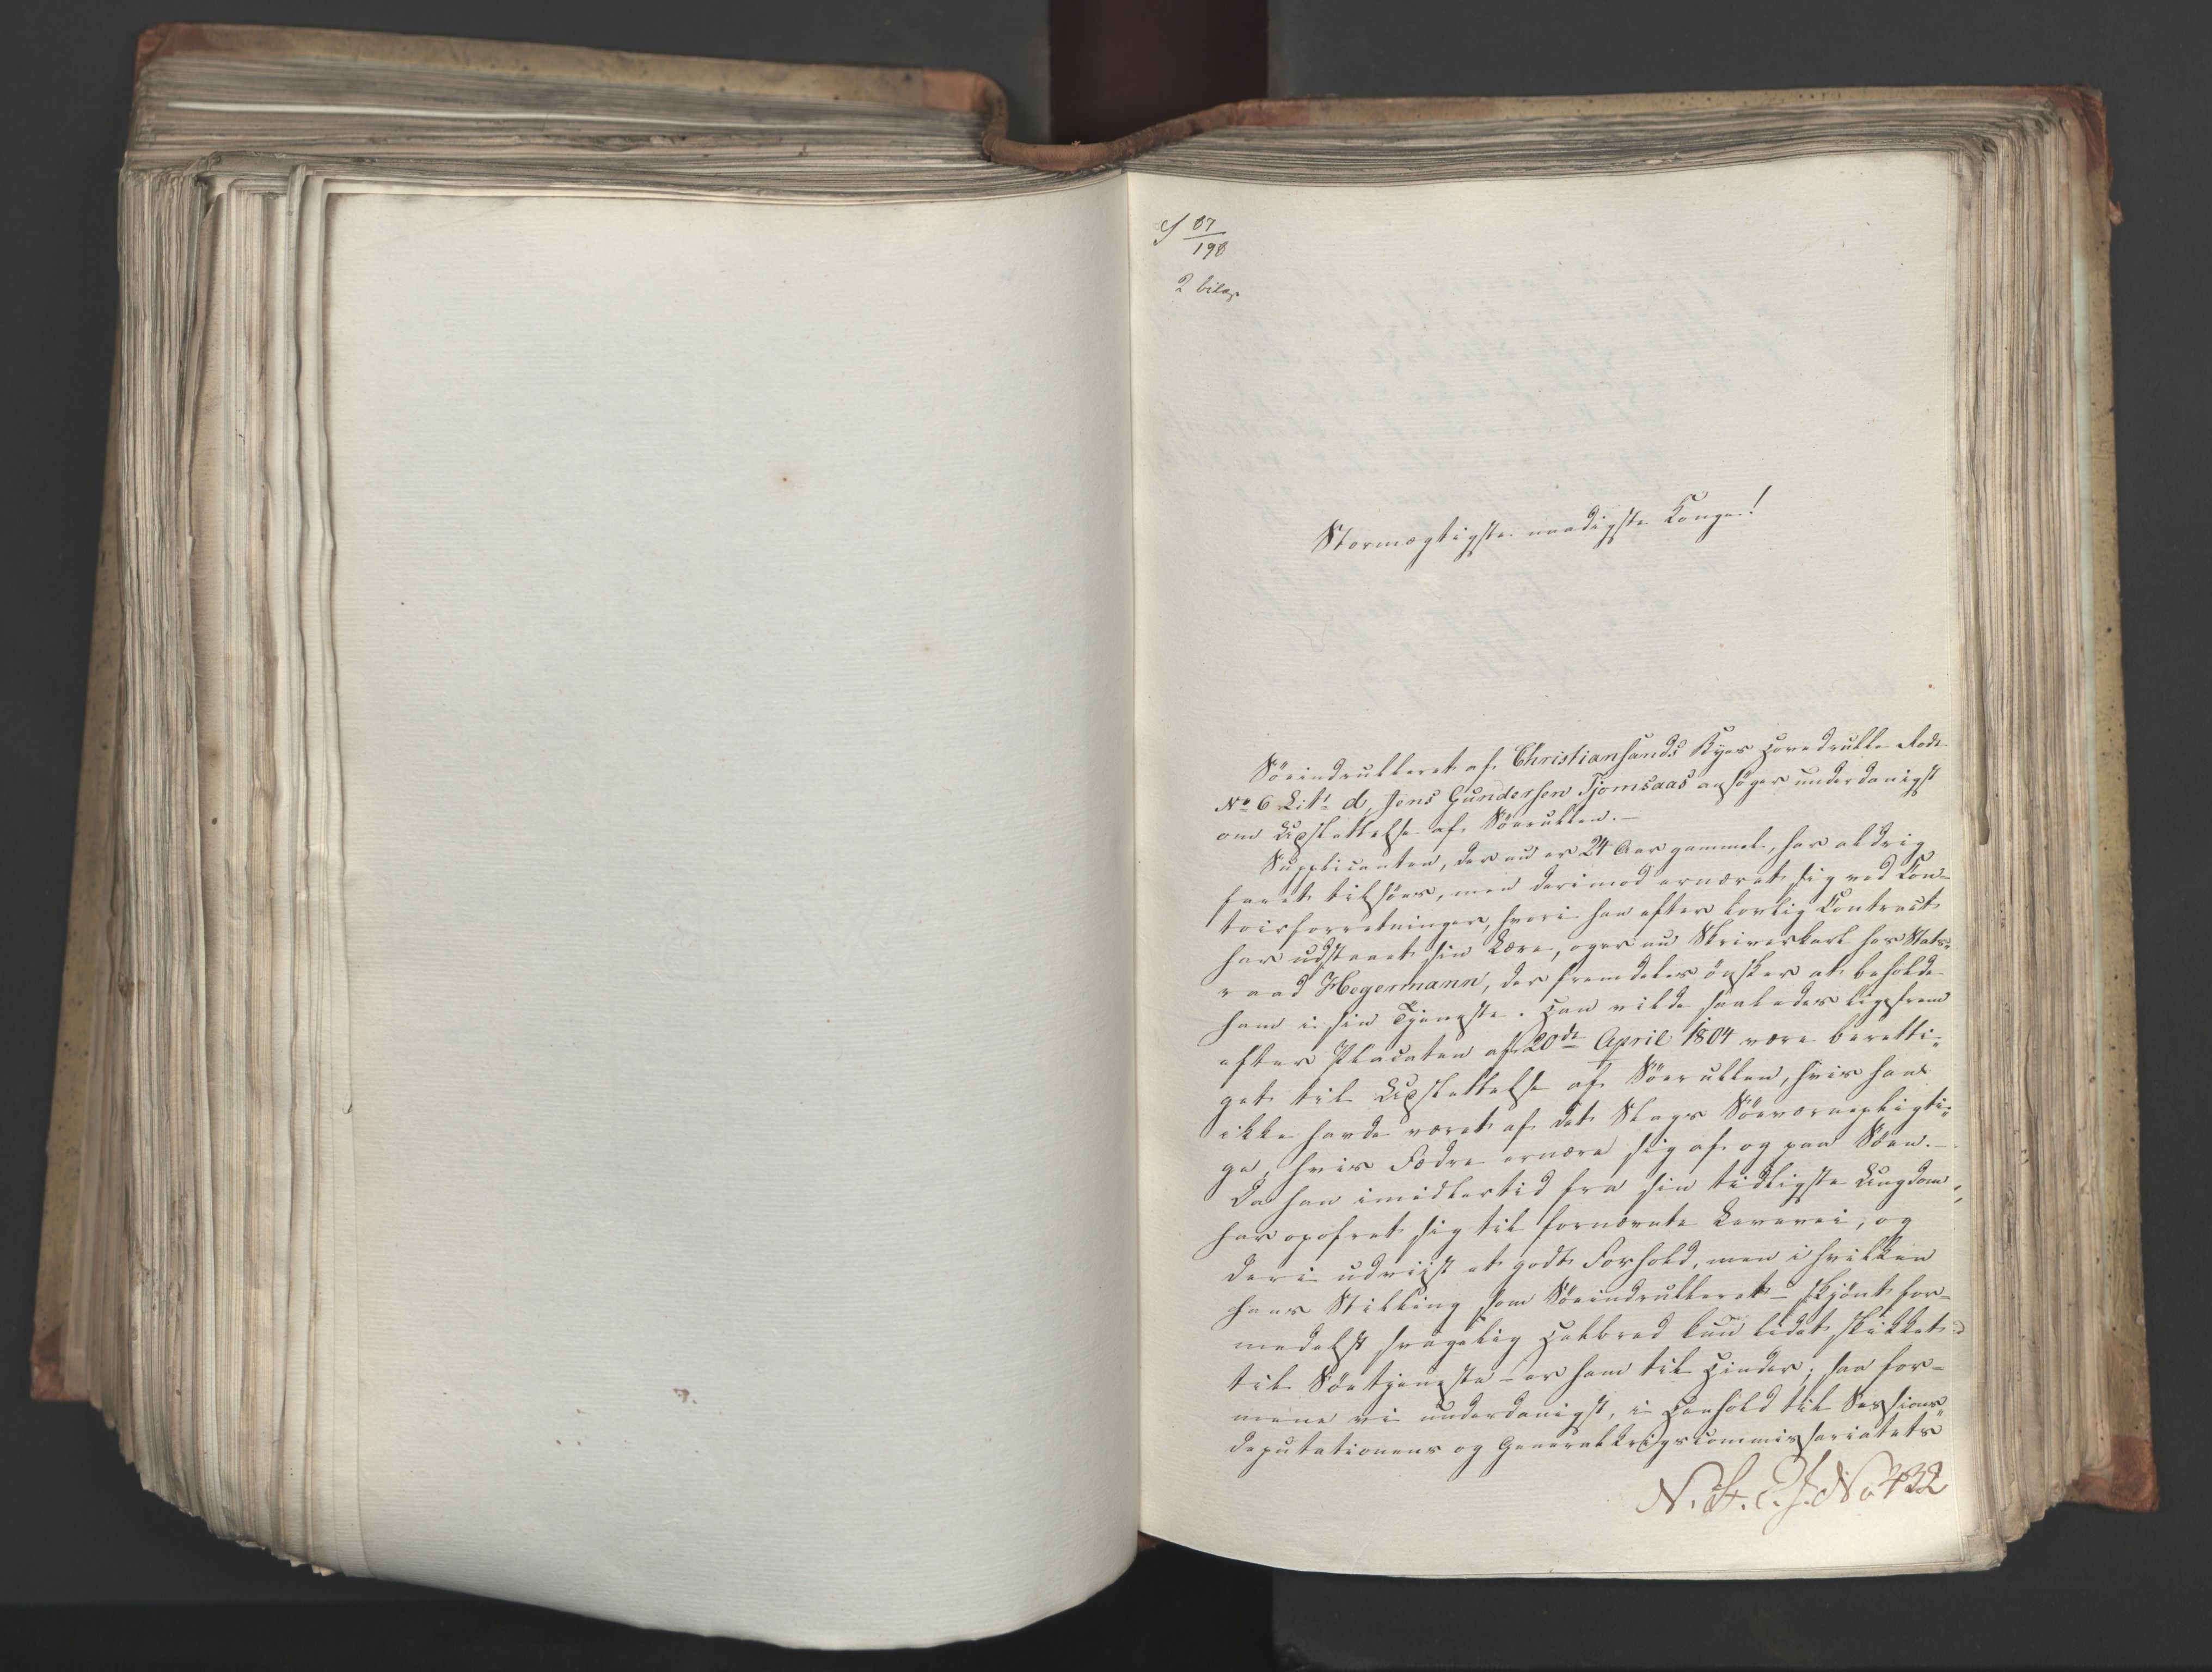 S 87
198
2 bilag
Stormægtigste naadigste Konge!
Søeindrulleret af Christiansands Byes Hovedrulle Rode
No 6 Litr d, Jens Gundersen Tjomsaas ansøger underdanigst
om Udslettelse af Søerullen. –
Supplicanten, der nu er 24 Aar gammel, har aldrig
faret tilsøes, men derimod ernæret sig ved Con-
toirforretninger, hvori han efter lovlig Contract
har udstaaet sin Lære, og er nu Skriverkarl hos Stats-
raad Hegermann, der fremdeles ønsker at beholde
ham i sin Tjeneste. Han vilde saaledes ligefrem
efter Placaten af 20de April 1804 være beretti-
get til Udslettelse af Søerullen, hvis han
ikke havde været af det Slags Søeværnepligti-
ge, hvis Fædre ernære sig af og paa Søen. –
Da han imidlertid fra sin tidligste Ungdom
har opofret sig til fornævnte Levevei, og
deri udviist et godt Forhold, men i hvilken
hans Stilling som Søeindrulleret – skjönt for-
medelst svagelig Helbred kun lidet skikket
til Søetjeneste – er ham til Hinder; saa for-
mene vi underdanigst, i Henhold til Sessions-
deputationens og Generalkrigscommissariatets
N. St. C. J. No 432